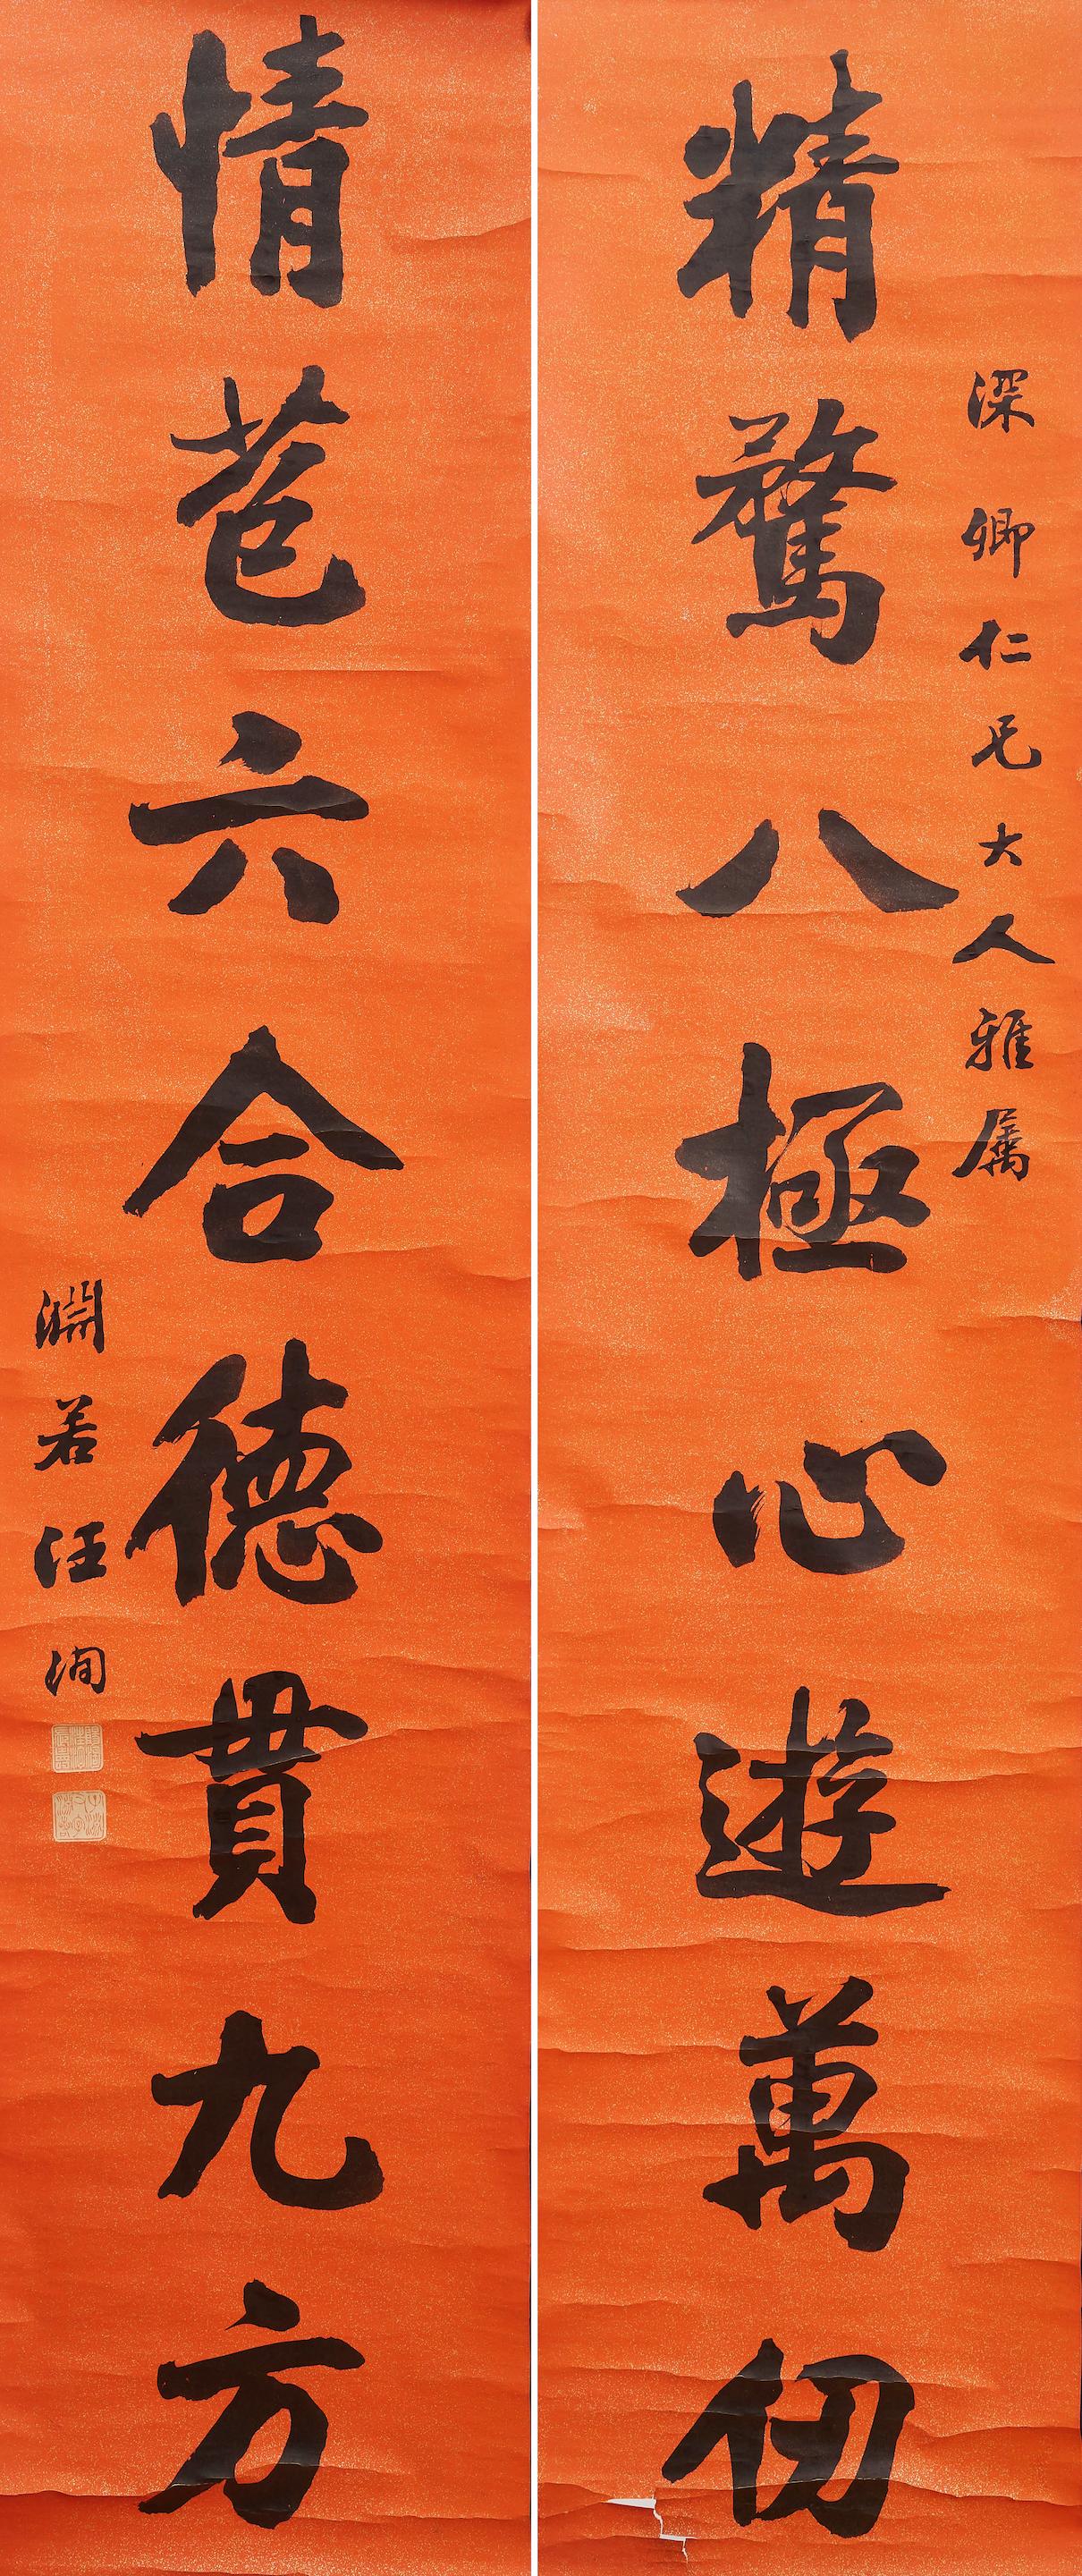 深卿仁兄大人雅属
精騖八極心遊萬仞
情苞六合德貫九方
淵若汪洵